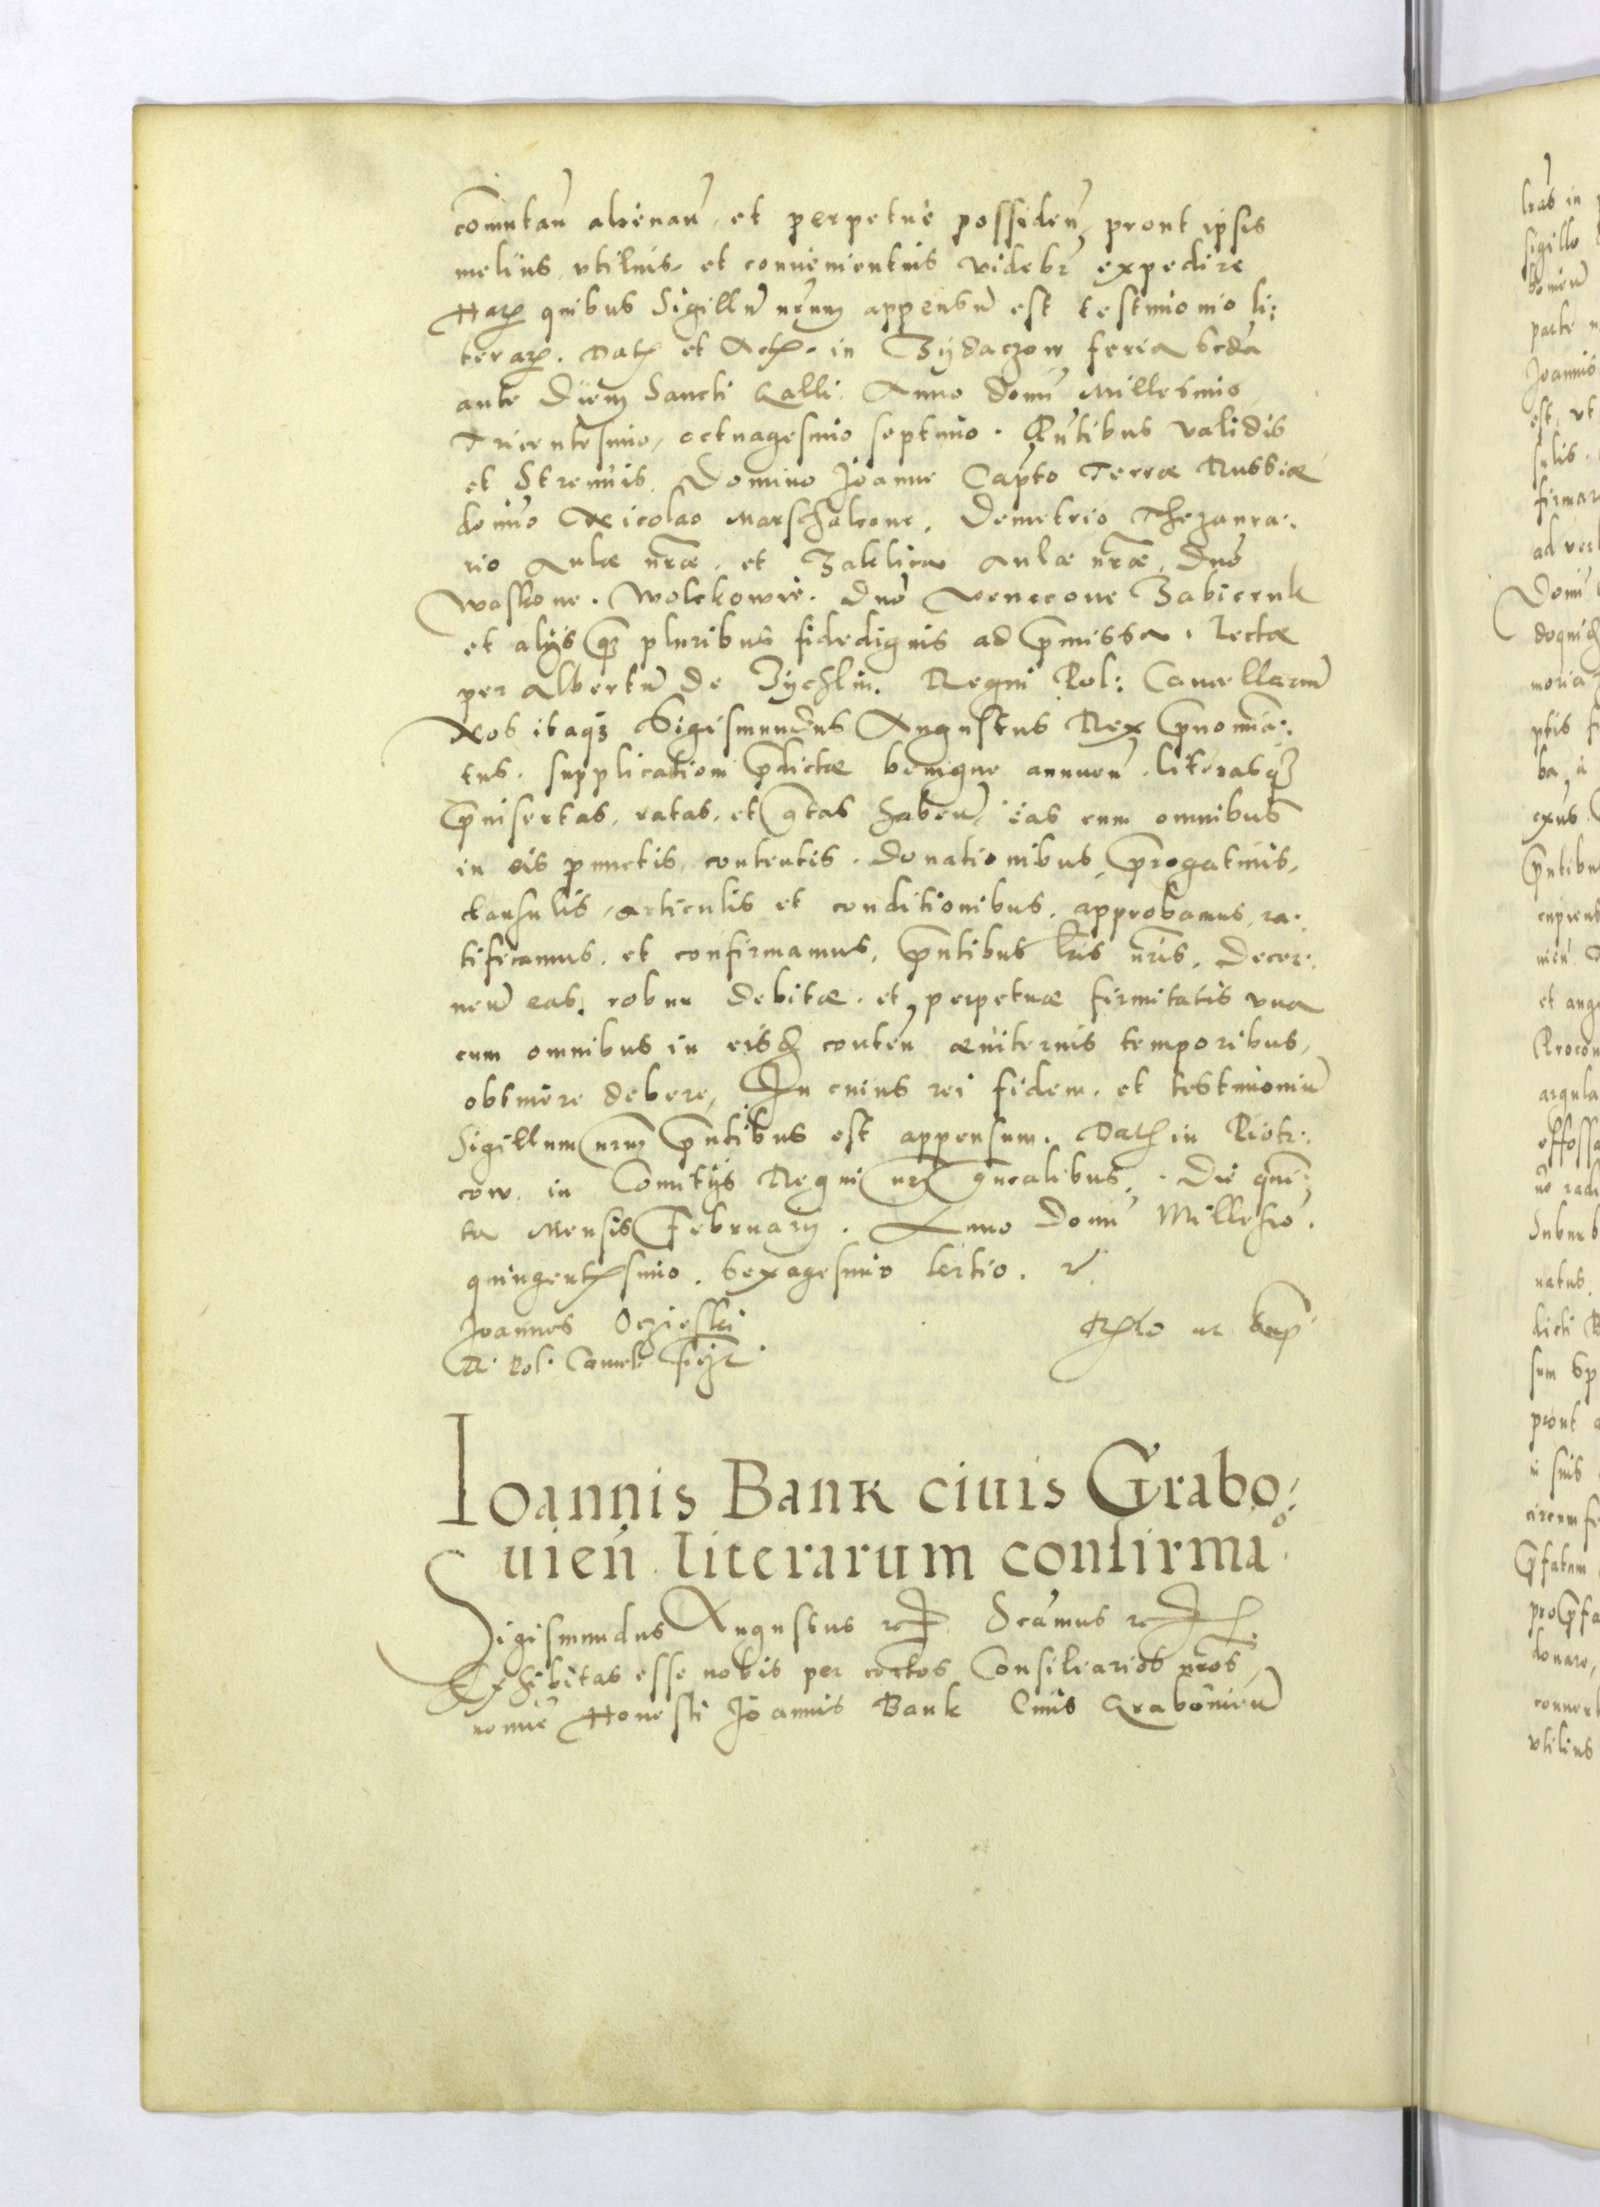 com̄utan̄ alienan̄, et perpetue possiden̄, prout ipsis
melius, vtilius, et conuenientius videbr̃ expedire
Harꝝ quibus Sigillū nr̄um appensū est testimonio li:
terarꝝ. Datꝭ et Actꝭ. in Zÿdaczow feria scd̄a
ante Diem Sancti Galli. Anno Domī Millesimo
Tricentesimo, octuagesimo septimo. Pn̄tibus validis
et Strenuis, Domino Joanne Capt̄o Terræ Russiæ
domīo Nicolao Marschalcone, Demetrio Thezaura:
rio Aulæ nr̄æ, et Zaklica aulæ nr̄æ, Dn̄o
Waskone. Wolckowie. Dn̄o Benecone Zabiernk
et alijs qz pluribus fidedignis ad p̄missa. Lectæ
per Albertū de Zychlin. Regni Pol: Cancellariū
Nos itaqz Sigismundus Augustus Rex p̄nomīa:
tus. supplicationi p̄dictæ benigne annuen̄. literasqz
p̄insertas, ratas, et gratas haben̄, eas cum omnibus
in eis punctis, contentis. donationibus, p̄rogatiuis,
clausulis, articulis et conditionibus. approbamus, ra:
tificamus. et confirmamus, p̄ntibus lr̄is nr̄is. Decer:
nen̄ eas, robur debitæ. et perpetuæ firmitatis vna
cum omnibus in eisd̄ conten̄ æuiternis temporibus,
obtinere debere, In cuius rei fidem. et testimoniū
Sigillum nr̄um p̄ntibus est appensum. Datꝭ in Piotr:
cow. in Comitijs Regni nr̄i gn̄ealibus. Die quin:
ta Mensis Februarij. Anno Domī Millesio.
quingentꝭsimo. sexagesimo tertio.
Joannes Oczieski
R. Pol. Cancel:
Rlo ut supꝭ
Ioannis Bank ciuis Grabo:
uien̄ literarum confirmao
Sigismundus Augustus &c. Scamus &c.
Exhibitas esse nobis per certos Consiliarios nr̄os,
nomīe Honesti Joannis Bank Ciuis Grabouien̄